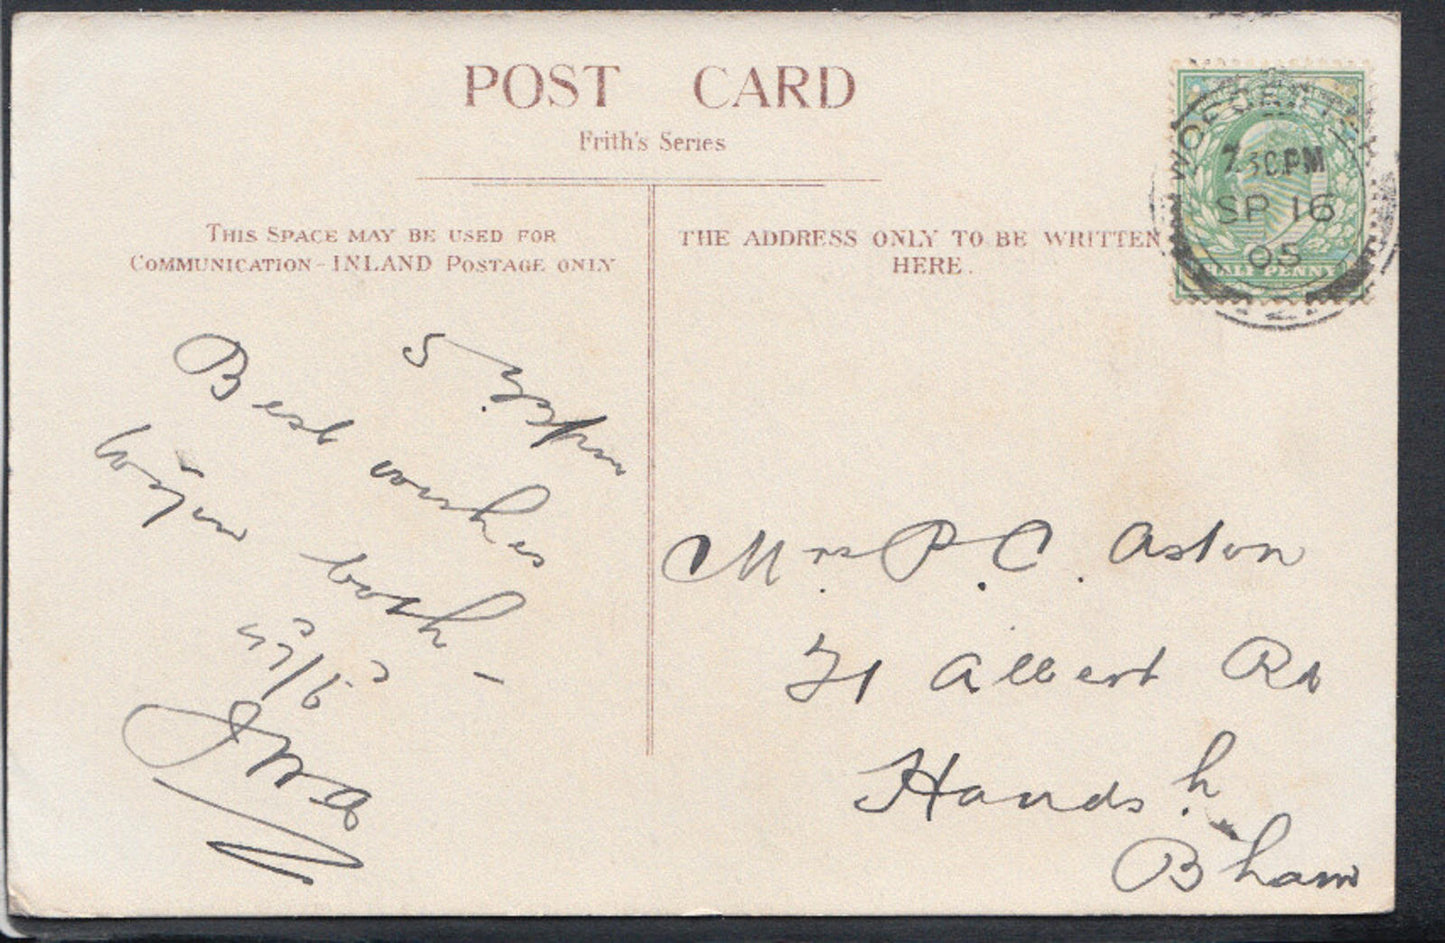 POST CARD
Frith's Series
THIS SPACE MAY BE USED FOR
COMMUNICATION - INLAND POSTAGE ONLY
THE ADDRESS ONLY TO BE WRITTEN
HERE.
7.30PM
SP 16
05
HALF PENNY
5
Best wishes
both -
Mrs P. C. Aston
71 Albert Rd
Handsh.
Bham